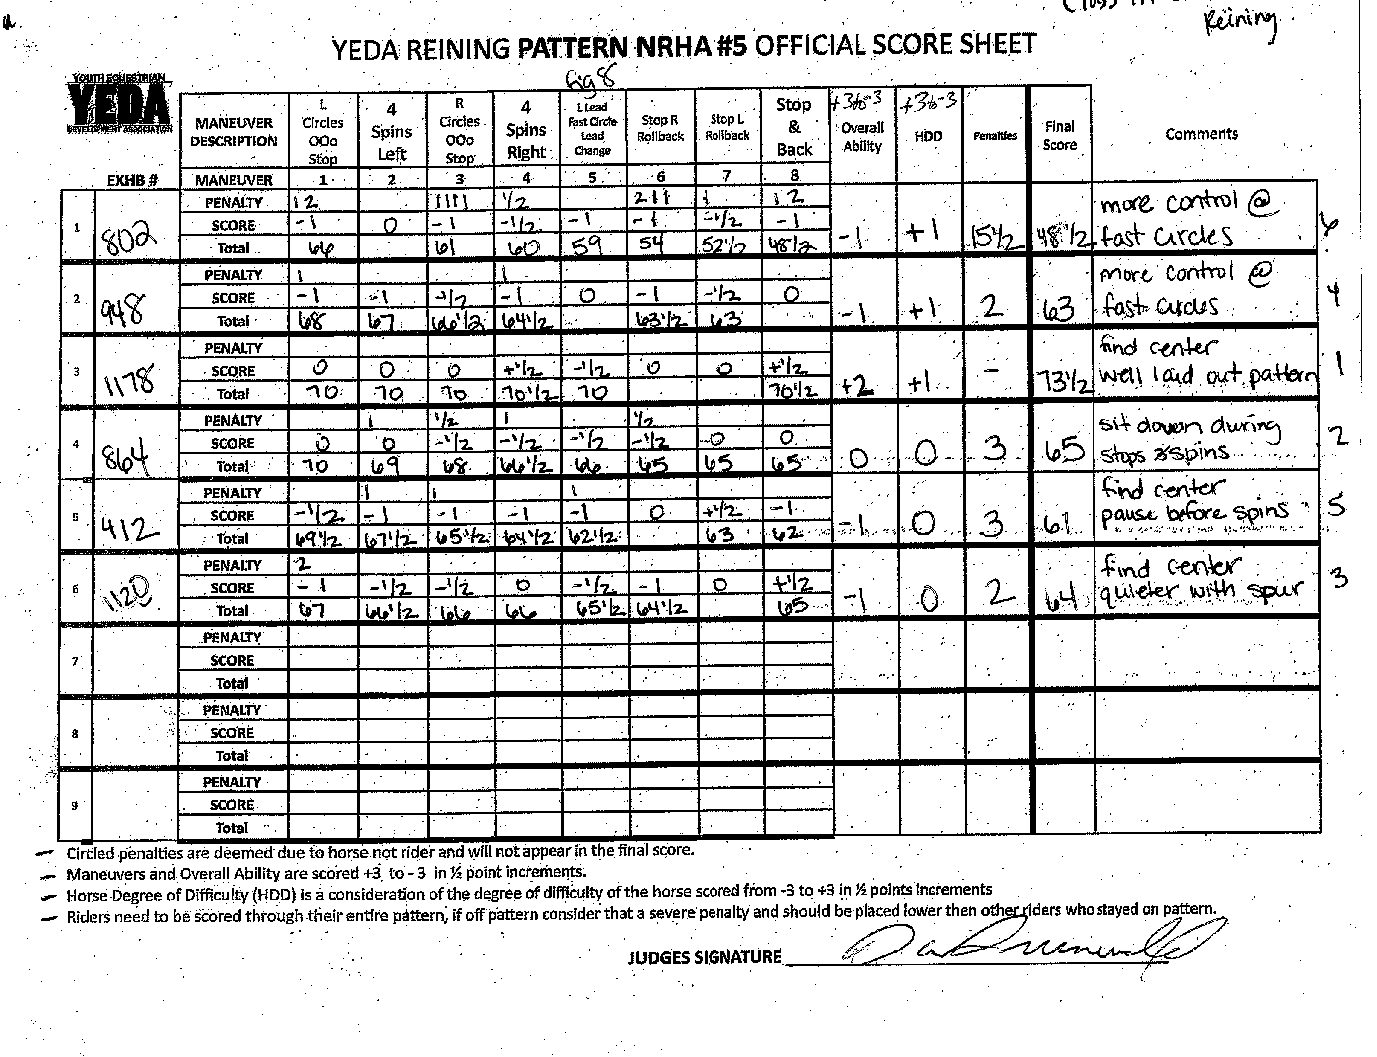 Reining
YEDA REINING PATTERN NRHA #5 OFFICIAL SCORE SHEET
YOUTH EQUESTRIAN
YEDA
DEVELOPMENT ASSOCIATION
Fig 8
EXHB #
MANEUVER DESCRIPTION | L Circles OOo Stop | 4 Spins Left | R Circles OOo Stop | 4 Spins Right | L Lead Fast Circle Lead Change | Stop R Rollback | Stop L Rollback | Stop & Back | +3 to -3 Overall Ability | +3 to -3 HDD | Penalties | Final Score | Comments
MANEUVER | 1 | 2 | 3 | 4 | 5 | 6 | 7 | 8
1 | 802 | -1 | +1 | 15 1/2 | 48 1/2 | more control @ fast circles | 6
PENALTY | 1 2 | | 1111 | 1/2 | | 211 | 1 | 12
SCORE | -1 | 0 | -1 | -1/2 | -1 | -1 | -1/2 | -1
Total | 66 | | 61 | 60 | 59 | 54 | 52 1/2 | 48 1/2
2 | 948 | -1 | +1 | 2 | 63 | more control @ fast circles | 4
PENALTY | 1 | | | 1
SCORE | -1 | -1 | -1/2 | -1 | 0 | -1 | -1/2 | 0
Total | 68 | 67 | 66 1/2 | 64 1/2 | | 63 1/2 | 63
3 | 1178 | +2 | +1 | - | 73 1/2 | find center well laid out pattern | 1
PENALTY
SCORE | 0 | 0 | 0 | +1/2 | -1/2 | 0 | 0 | +1/2
Total | 70 | 70 | 70 | 70 1/2 | 70 | | | 70 1/2
4 | 864 | 0 | 0 | 3 | 65 | sit down during stops & spins | 2
PENALTY | | 1 | 1/2 | 1 | | 1/2
SCORE | 0 | 0 | -1/2 | -1/2 | -1/2 | -1/2 | 0 | 0
Total | 70 | 69 | 68 | 66 1/2 | 66 | 65 | 65 | 65
5 | 412 | -1 | 0 | 3 | 61 | find center pause before spins | 5
PENALTY | | 1 | 1 | | 1
SCORE | -1/2 | -1 | -1 | -1 | -1 | 0 | +1/2 | -1
Total | 69 1/2 | 67 1/2 | 65 1/2 | 64 1/2 | 62 1/2 | | 63 | 62
6 | 1120 | -1 | 0 | 2 | 64 | find center quieter with spur | 3
PENALTY | 2
SCORE | -1 | -1/2 | -1/2 | 0 | -1/2 | -1 | 0 | +1/2
Total | 67 | 66 1/2 | 66 | 66 | 65 1/2 | 64 1/2 | | 65
7
PENALTY
SCORE
Total
8
PENALTY
SCORE
Total
9
PENALTY
SCORE
Total
— Circled penalties are deemed due to horse not rider and will not appear in the final score.
— Maneuvers and Overall Ability are scored +3 to - 3 in ½ point increments.
— Horse Degree of Difficulty (HDD) is a consideration of the degree of difficulty of the horse scored from -3 to +3 in ½ points increments
— Riders need to be scored through their entire pattern, if off pattern consider that a severe penalty and should be placed lower then other riders who stayed on pattern.
JUDGES SIGNATURE